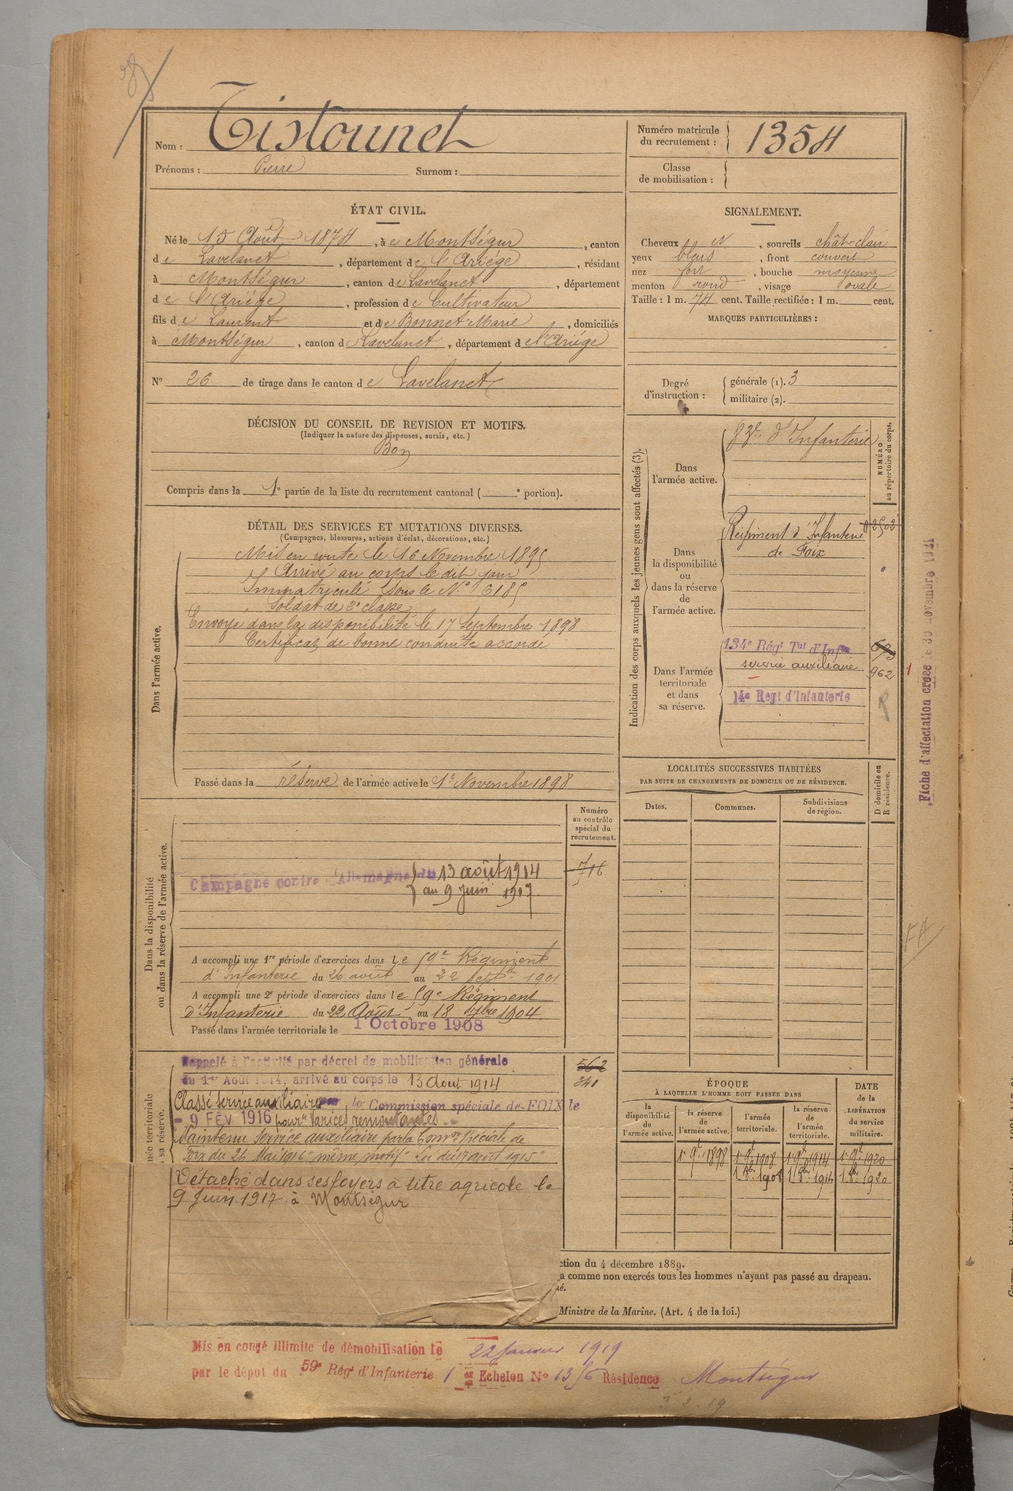 Nom : Tistounet
Prénoms : Pierre Surnom :
Numéro matricule du recrutement : 1354
Classe de mobilisation :
ÉTAT CIVIL.
Né le 15 Août 1874, à Montségur, canton
de Lavelanet, département de l'Ariége, résidant
à Montségur, canton de Lavelanet, département
de l'Ariége, profession de Cultivateur
fils de Laurent et de Bonnet Marie, domiciliés
à Montségur, canton de Lavelanet, département de l'Ariége
N° 26 de tirage dans le canton de Lavelanet
SIGNALEMENT.
Cheveux, sourcils chât-clair
yeux bleus, front couvert
nez fort, bouche moyenne
menton rond, visage ovale
Taille : 1 m. 74 cent. Taille rectifiée : 1 m. cent.
MARQUES PARTICULIÈRES :
Degré d'instruction : générale (1). 3
militaire (2).
DÉCISION DU CONSEIL DE REVISION ET MOTIFS.
(Indiquer la nature des dispenses, sursis, etc.)
Bon
Compris dans la 1e partie de la liste du recrutement cantonal ( e portion).
DÉTAIL DES SERVICES ET MUTATIONS DIVERSES.
(Campagnes, blessures, actions d'éclat, décorations, etc.)
Dans l'armée active.
Mis en route le 16 Novembre 1895
Arrivé au corps le dit jour
Immatriculé sous le N° 6185
Soldat de 2e classe
Envoyé dans la disponibilité le 17 Septembre 1898
Certificat de bonne conduite accordé
Passé dans la réserve de l'armée active le 1er Novembre 1898
Indication des corps auxquels les jeunes gens sont affectés (3).
NUMÉRO au répertoire du corps.
Dans l'armée active.
d'Infanterie
Dans la disponibilité ou dans la réserve de l'armée active.
Régiment d'Infanterie
de Foix
Dans l'armée territoriale et dans sa réserve.
134e Régt Tal d'Infie
service auxiliaire
962
14e Regt d'Infanterie
Fiche d'affectation créée le 30 novembre 1921
LOCALITÉS SUCCESSIVES HABITÉES
PAR SUITE DE CHANGEMENTS DE DOMICILE OU DE RÉSIDENCE.
Dates. Communes. Subdivisions de région. D domicile ou R résidence.
Dans la disponibilité ou dans la réserve de l'armée active.
Numéro au contrôle spécial du recrutement.
716
Campagne contre l'Allemagne du 13 août 1914
au 9 Juin 1917
A accompli une 1re période d'exercices dans le 59e Régiment
d'Infanterie du 26 août au 22 Septbre 1901
A accompli une 2e période d'exercices dans le 59e Régiment
d'Infanterie du 22 Août au 18 7bre 1904.
Passé dans l'armée territoriale le 1 Octobre 1908
Rappelé à l'activité par décret de mobilisation générale
du 1er Août 1914, arrivé au corps le 13 Aout 1914
562
341
Classé Service auxiliaire par la Commission spéciale de FOIX le
- 9 FÉV 1916 pour varices remontantes
Maintenu Service auxiliaire par la Comon Spéciale de
Foix du 26 Mai 1916 "même motif" Loi du 17 août 1915"
Détaché dans ses foyers à titre agricole le
9 Juin 1917 à Montségur
ÉPOQUE
À LAQUELLE L'HOMME DOIT PASSER DANS
la disponibilité de l'armée active. la réserve de l'armée active. l'armée territoriale. la réserve de l'armée territoriale.
DATE de la LIBÉRATION du service militaire.
1er 9bre 1898 1er 9bre 1908 1er 9bre 1914 1er 9bre 1920
1er 8bre 1908 1er 8bre 1914 1er 8bre 1920
ction du 4 décembre 1889.
a comme non exercés tous les hommes n'ayant pas passé au drapeau.
Ministre de la Marine. (Art. 4 de la loi.)
Mis en congé illimité de démobilisation le 22 Janvier 1919
par le dépôt du 59e Régt d'Infanterie 1er Echelon N° 1356 Résidence Montségur